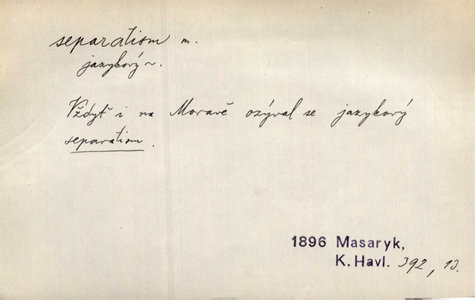 separatism m.
jazykový ~.
Vždyť i na Moravě ozýval se jazykový
separatism.
1896 Masaryk,
K. Havl. 392, 13.